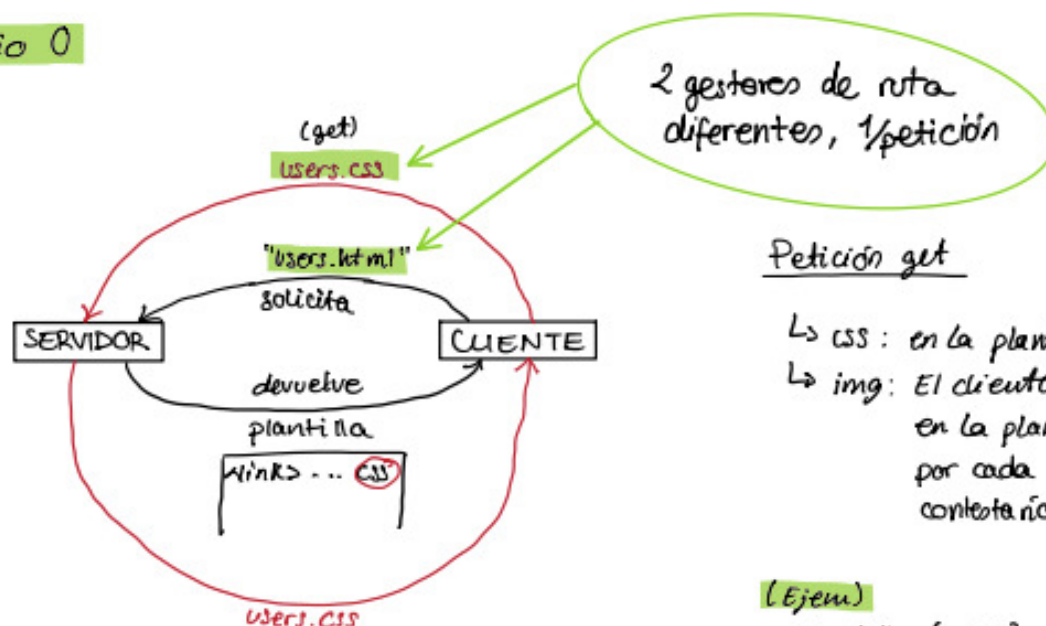 io 0
2 gestores de ruta
diferentes, 1/petición
(get)
users.css
"users.html"
solicita
SERVIDOR
CLIENTE
devuelve
plantilla
<link> ... css
users.css
Petición get
↳ css : en la plan
↳ img: El cliente
en la plan
por cada
(Ejem)